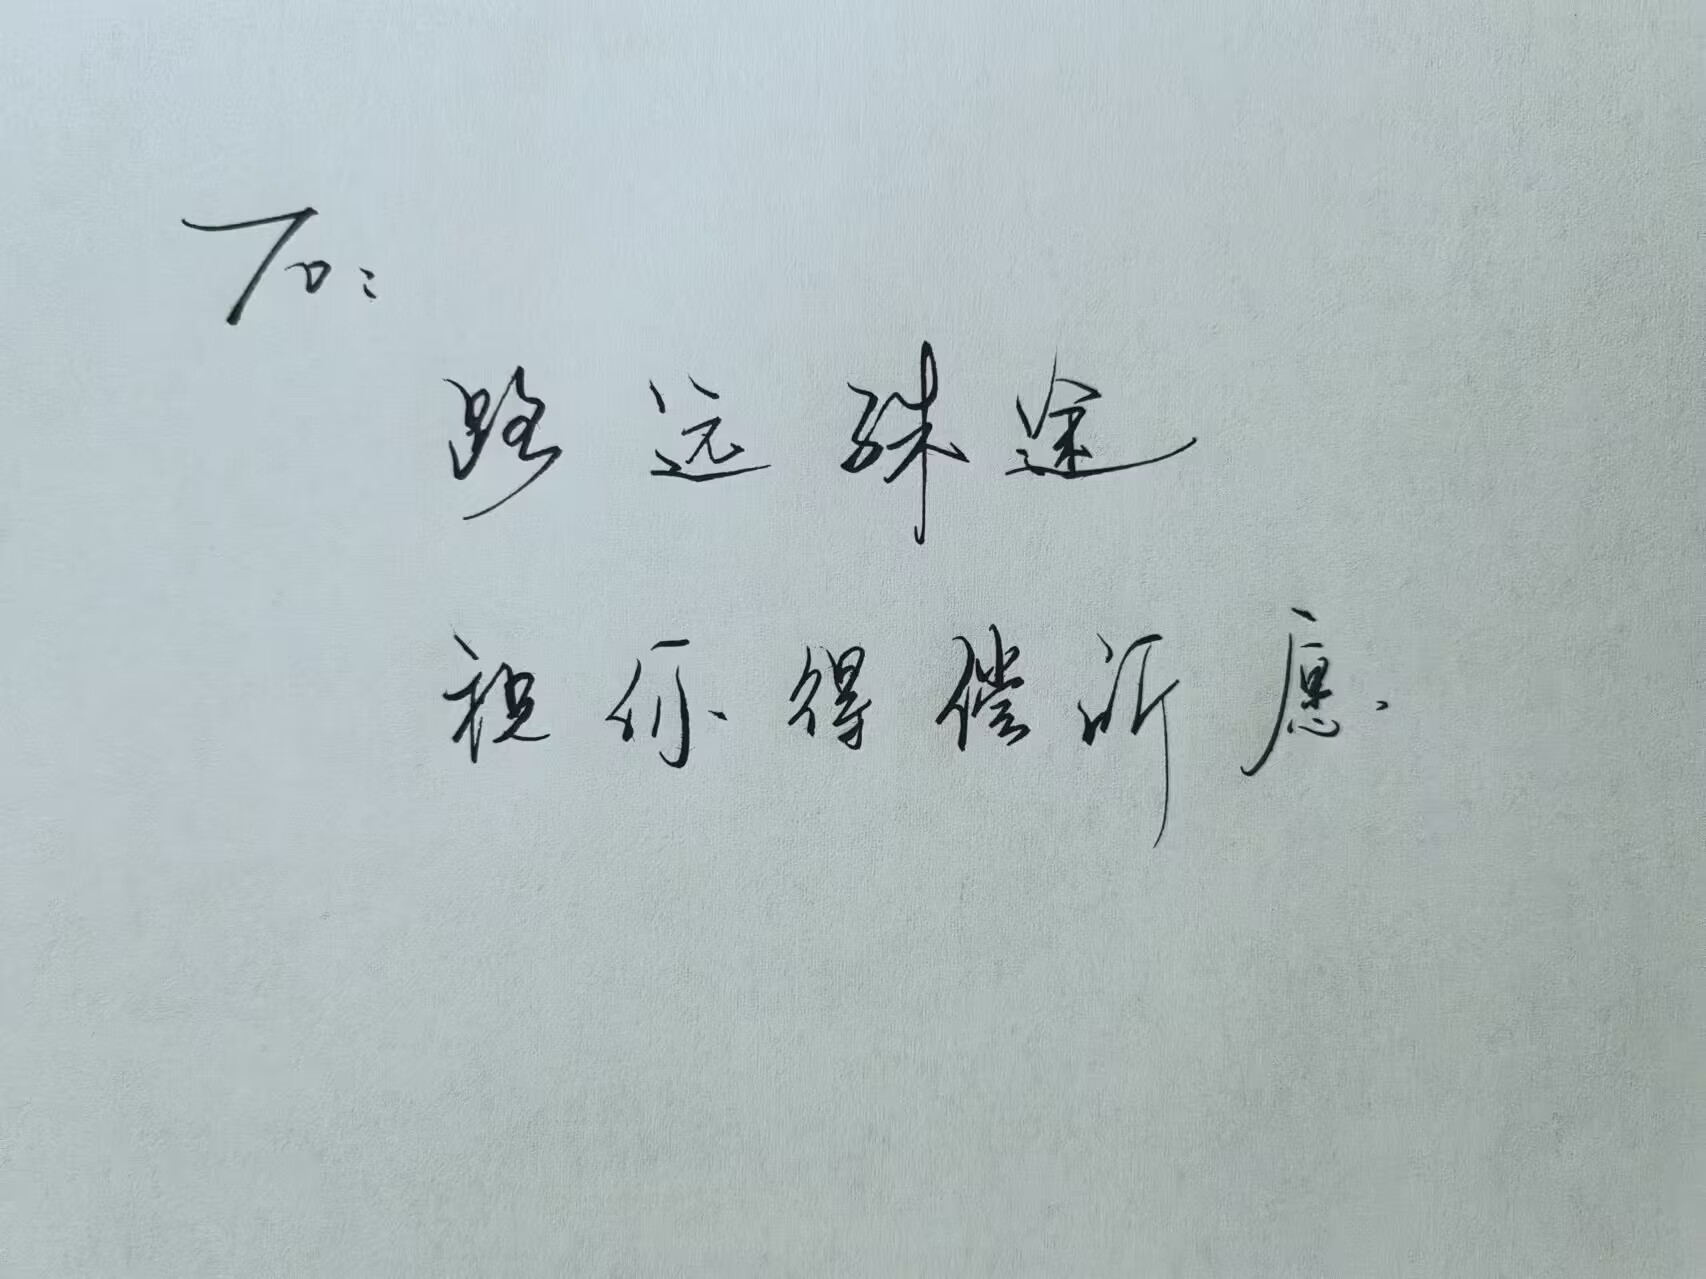 To:
路远殊途
祝你得偿所愿.